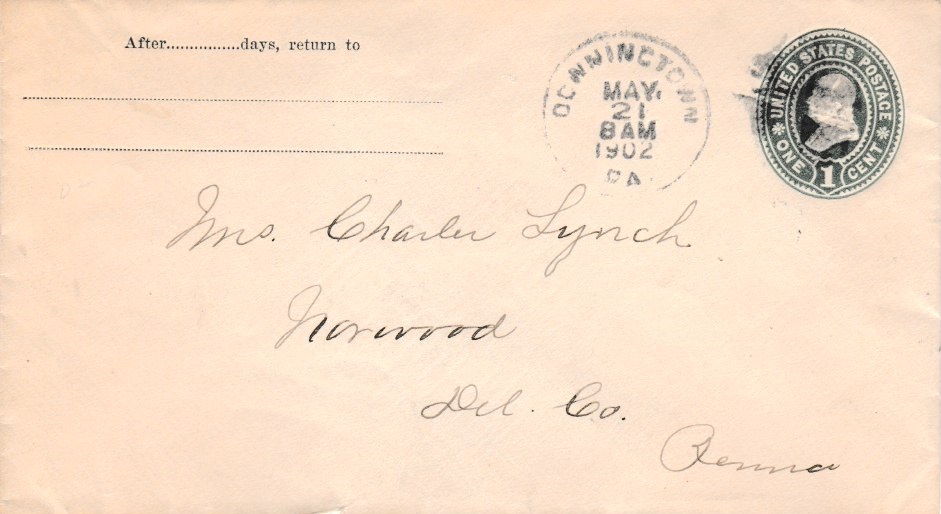 After................days, return to
DOWNINGTOWN
MAY.
21
8 AM
1902
PA.
UNITED STATES POSTAGE
ONE
1
CENT
Mrs. Charles Lynch
Norwood
Del. Co.
Penna